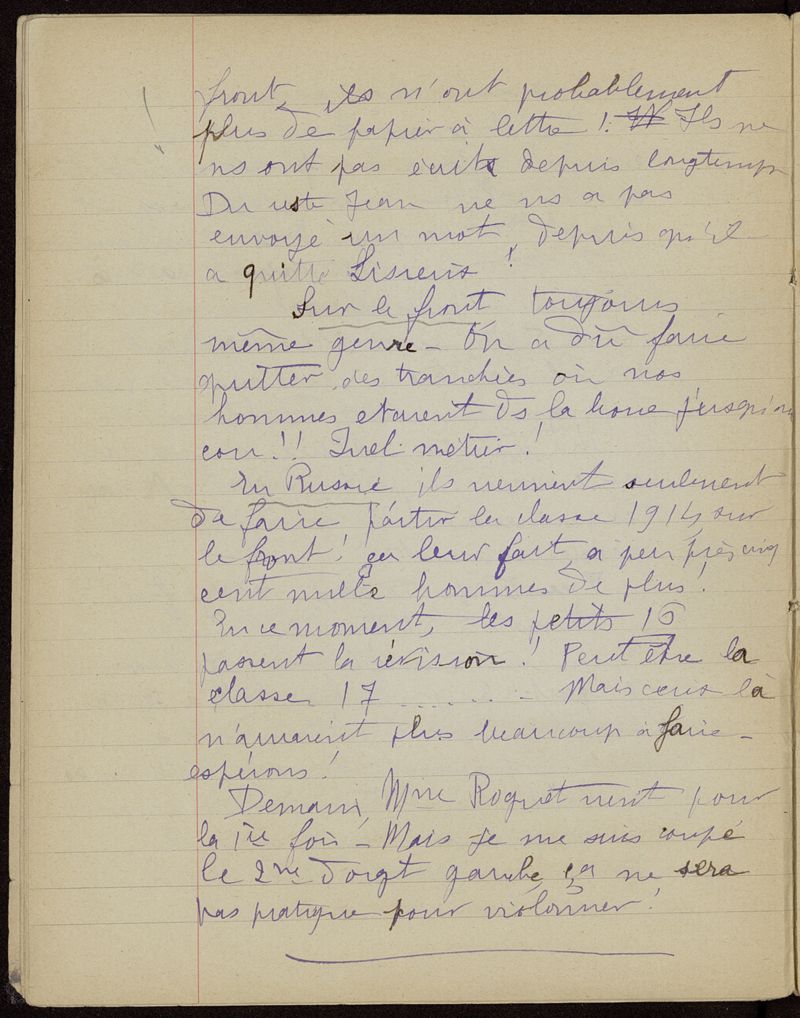 front, ils n'ont probablement
plus de papier à lettre !. Ils ne
ns ont pas écrit depuis longtemps
Du reste Jean ne ns a pas
envoyé un mot, depuis qu'il
a quitté Lisieux !
Sur le front toujours
même genre – On a dû faire
quitter des tranchées où nos
hommes étaient ds la boue jusqu'au
cou !! Quel métier !
En Russie ils viennent seulement
de faire partir la classe 1914 sur
le front ! ça leur fait à peu près cinq
cent mille hommes de plus !
En ce moment, les petits 16
passent la révision ! Peut être la
classe 17 ....... – Mais ceux là
n'auraient plus beaucoup à faire –
espérons !
Demain, Mme Roquet vient pour
la 1ère fois – Mais je me suis coupé
le 2me doigt gauche, ça ne sera
pas pratique pour violonner !